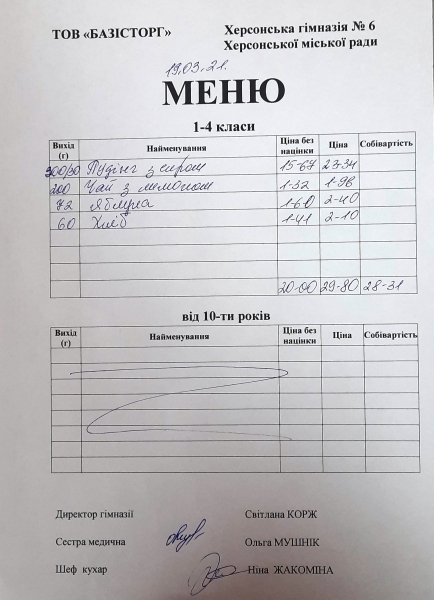 ТОВ «БАЗІСТОРГ» Херсонська гімназія № 6
Херсонської міської ради
19.03.21.
МЕНЮ
1-4 класи
Вихід (г) Найменування Ціна без націнки Ціна Собівартість
300/30 Пудінг з сиром 15-67 23-34
200 Чай з лимоном 1-32 1-96
72 Яблука 1-60 2-40
60 Хліб 1-41 2-10
20-00 29-80 28-31
від 10-ти років
Вихід (г) Найменування Ціна без націнки Ціна Собівартість
Директор гімназії Світлана КОРЖ
Сестра медична Ольга МУШНІК
Шеф кухар Ніна ЖАКОМІНА